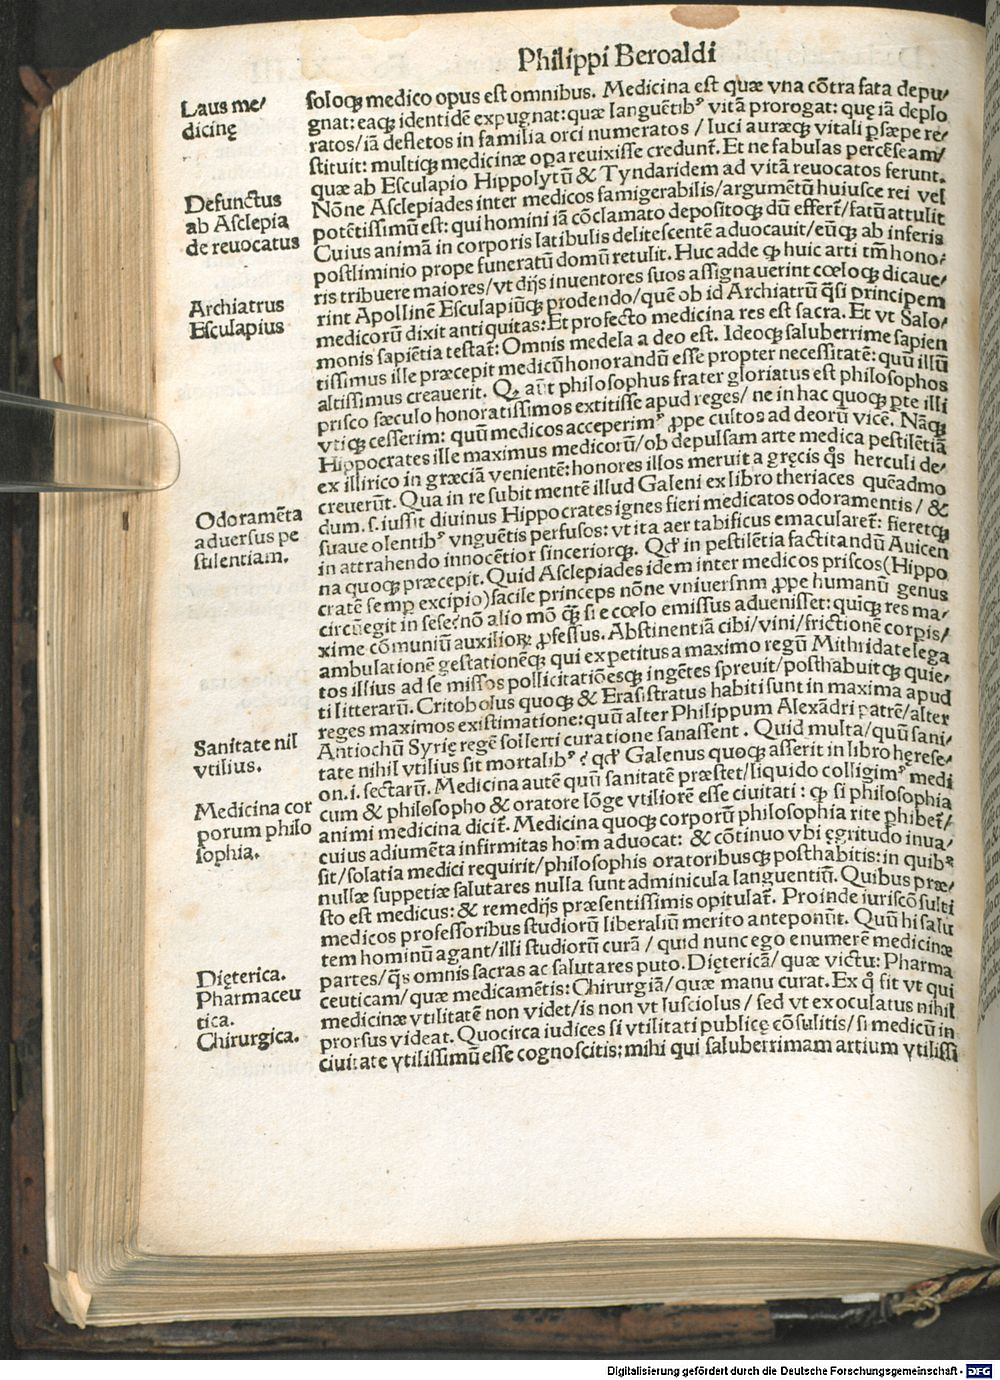 Philippi Beroaldi
Laus me/
dicinę
Defunctus
ab Asclepia
de reuocatus
Archiatrus
Esculapius
Odoramēta
aduersus pe
stilentiam.
Sanitate nil
vtilius.
Medicina cor
porum philo
sophia.
Dięterica.
Pharmaceu
tica.
Chirurgica.
soloqꝫ medico opus est omnibus. Medicina est quæ vna cōtra fata depu/
gnat: eaqꝫ identidē expugnat: quæ languētibꝰ vitā prorogat: quę iā deplo
ratos/iā defletos in familia orci numeratos / luci auræqꝫ vitali ꝑsæpe re/
stituit: multiqꝫ medicinæ opa reuixisse credunt᷑. Et ne fabulas percēseam/
quæ ab Esculapio Hippolytū & Tyndaridem ad vitā reuocatos ferunt.
Nōne Asclepiades inter medicos famigerabilis/argumētū huiusce rei vel
potētissimū est: qui homini iā cōclamato depositoqꝫ dū effert᷑/fatū attulit
Cuius animā in corporis latibulis delitescentē aduocauit/eūqꝫ ab inferis
postliminio prope funeratū domū retulit. Huc adde ꝙ huic arti tm̄ hono/
ris tribuere maiores/vt dijs inuentores suos assignauerint cœloqꝫ dicaue/
rint Apollinē Esculapiūqꝫ prodendo/quē ob id Archiatrū q̄si principem
medicorū dixit antiquitas: Et profecto medicina res est sacra. Et vt Salo/
monis sapiētia testat᷑: Omnis medela a deo est. Ideoqꝫ saluberrime sapien
tissimus ille præcepit medicū honorandū esse propter necessitatē: quū illū
altissimus creauerit. Qꝫ aūt philosophus frater gloriatus est philosophos
prisco sæculo honoratissimos extitisse apud reges/ ne in hac quoqꝫ ꝑte illi
vtiqꝫ cesserim: quū medicos acceperimꝰ ꝓpe cultos ad deorū vicē. Nāqꝫ
Hippocrates ille maximus medicorū/ob depulsam arte medica pestilētiā
ex illirico in græciā venientē: honores illos meruit a gręcis qͦs herculi de/
creuerūt. Qua in re subit mentē illud Galeni ex libro theriaces quēadmo
dum. s. iussit diuinus Hippocrates ignes fieri medicatos odoramentis / &
suaue olentibꝰ vnguētis perfusos: vt ita aer tabificus emacularet᷑: fieretqꝫ
in attrahendo innocētior sinceriorqꝫ. Qd̓ in pestilētia factitandū Auicen
na quoqꝫ præcepit. Quid Asclepiades idem inter medicos priscos(Hippo
cratē semꝑ excipio)facile princeps nōne vniuersnm ꝓpe humanū genus
circūegit in sese?nō alio mō qꝫ̄ si e cœlo emissus aduenisset: quiqꝫ res ma/
xime cōmuniū auxilioꝝ ꝓfessus. Abstinentiā cibi/vini/frictionē corpis/
ambulationē gestationēqꝫ qui expetitus a maximo regū Mithridate lega
tos illius ad se missos pollicitatiōesqꝫ ingētes spreuit/posthabuitqꝫ quie/
ti litterarū. Critobolus quoqꝫ & Erasistratus habiti sunt in maxima apud
reges maximos existimatione: quū alter Philippum Alexādri patrē/alter
Antiochū Syrię regē sollerti curatione sanassent. Quid multa/quū sani/
tate nihil vtilius sit mortalibꝰ? qd̓ Galenus quoqꝫ asserit in libro hęrese/
on. i. sectarū. Medicina autē quū sanitatē præstet/liquido colligimꝰ medi
cum & philosopho & oratore lōge vtiliorē esse ciuitati: ꝙ si philosophia
animi medicina dicit᷑. Medicina quoqꝫ corporū philosophia rite phibet᷑/
cuius adiumēta infirmitas hoīm aduocat: & cōtinuo vbi ęgritudo inua/
sit/solatia medici requirit/philosophis oratoribusqꝫ posthabitis: in quibꝰ
nullæ suppetiæ salutares nulla sunt adminicula languentiū. Quibus præ/
sto est medicus: & remedijs præsentissimis opitulat᷑. Proinde iuriscōsulti
medicos professoribus studiorū liberaliū merito anteponūt. Quū hi salu
tem hominū agant/illi studiorū curā / quid nunc ego enumerē medicinæ
partes/q̄s omnis sacras ac salutares puto. Dięetericā/quæ victu: Pharma
ceuticam/quæ medicamētis: Chirurgiā/quæ manu curat. Ex qͦ fit vt qui
medicinæ vtilitatē non videt/is non vt lusciolus / sed vt exoculatus nihil
prorsus videat. Quocirca iudices si vtilitati publicę cōsulitis/si medicū in
ciuitate vtilissimū esse cognoscitis: mihi qui saluberrimam artium vtilissi
Digitalisierung gefördert durch die Deutsche Forschungsgemeinschaft - DFG